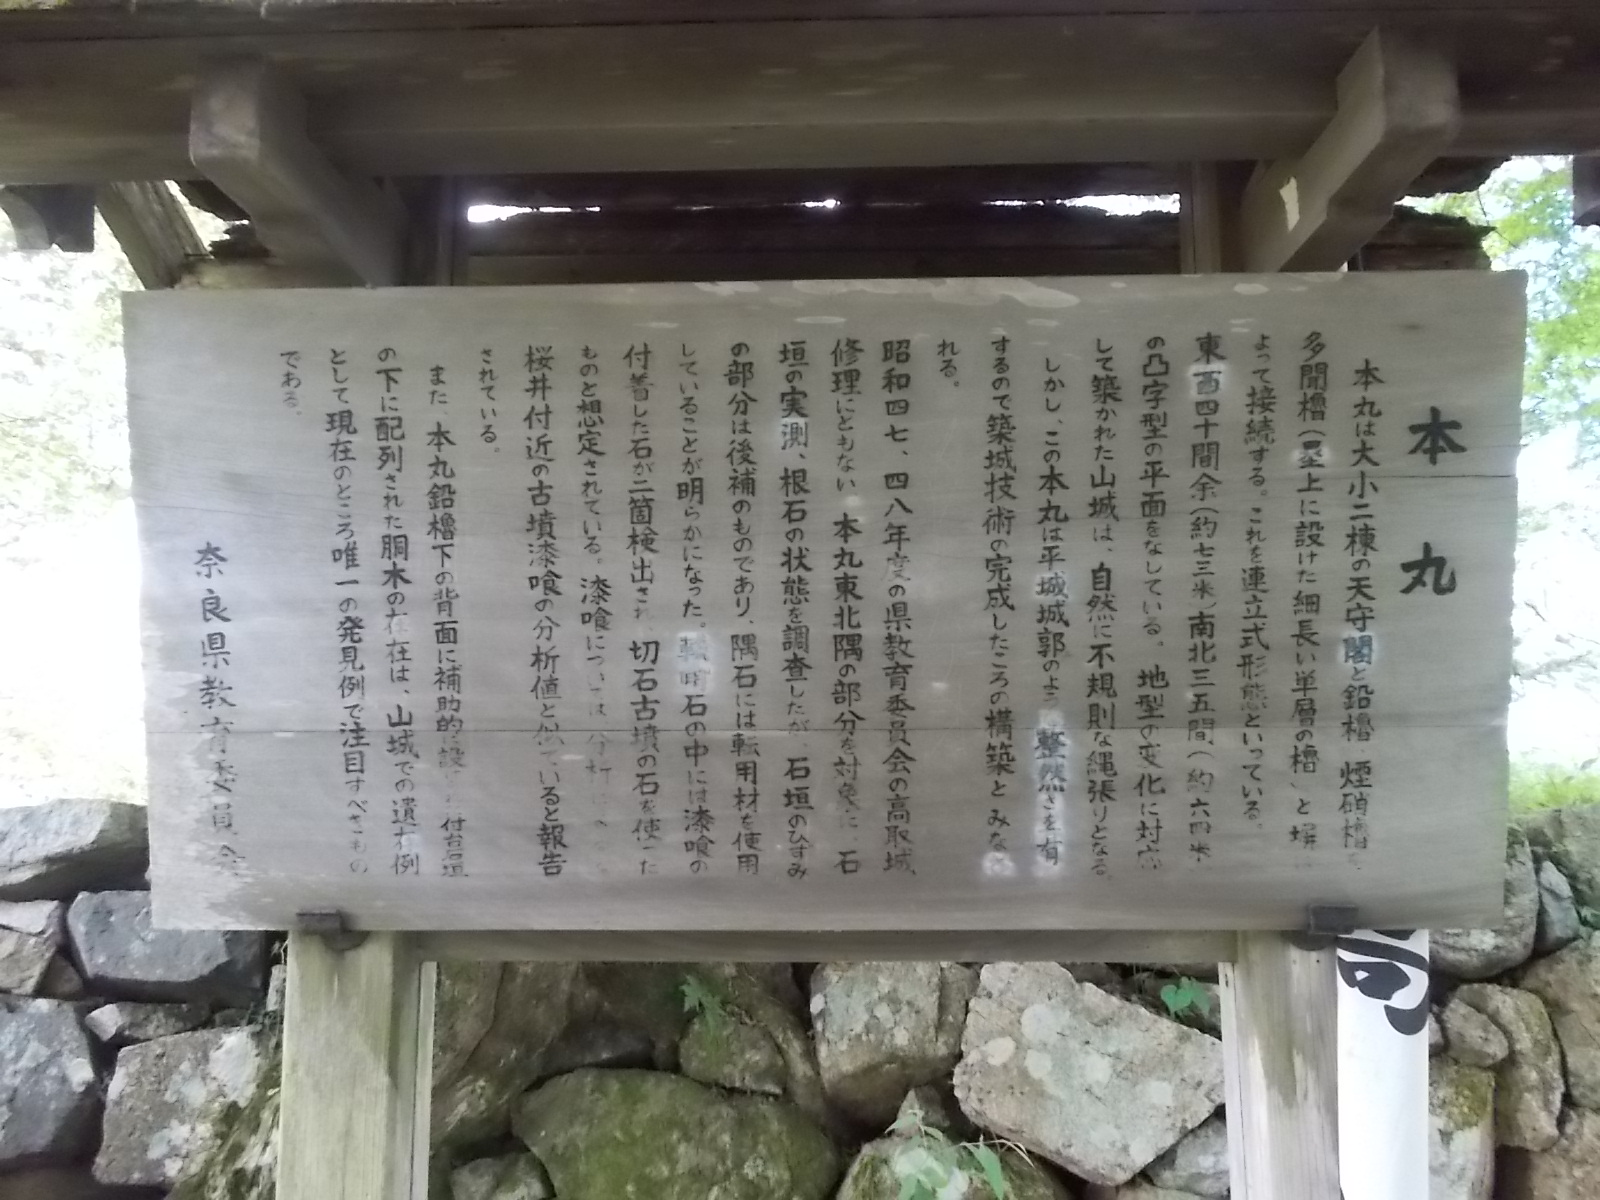 本丸
本丸は大小二棟の天守閣と鉛櫓、煙硝櫓を、
多聞櫓(塁上に設けた細長い単層の櫓)と塀に
よって接続する。これを連立式形態といっている。
東西四十間余(約七三米)南北三五間(約六四米)
の凸字型の平面をなしている。地型の変化に対応
して築かれた山城は、自然に不規則な縄張りとなる。
しかし、この本丸は平城城郭のよう 整然さを有
するので築城技術の完成したころの構築とみな
れる。
昭和四七、四八年度の県教育委員会の高取城
修理にともない、本丸東北隅の部分を対象に、石
垣の実測、根石の状態を調査したが、石垣のひずみ
の部分は後補のものであり、隅石には転用材を使用
していることが明らかになった。転用石の中には漆喰の
付着した石が二箇検出され、切石古墳の石を使った
ものと想定されている。漆喰については分析に
桜井付近の古墳漆喰の分析値と似ていると報告
されている。
また、本丸鉛櫓下の背面に補助的に設けた付台石垣
の下に配列された胴木の存在は、山城での遺存例
として現在のところ唯一の発見例で注目すべきもの
である。
奈良県教育委員会